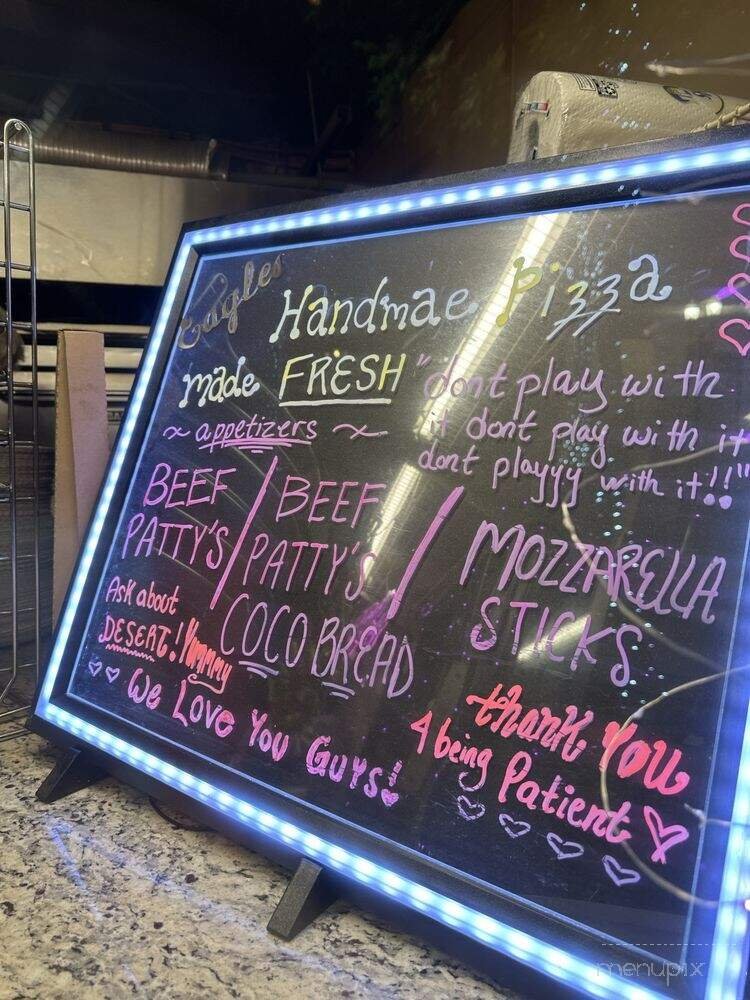 Eagles
Handmae Pizza
made FRESH
"dont play with
it dont play with it
dont playyy with it!!"
~ appetizers ~
BEEF
PATTY'S /
BEEF
PATTY'S
COCO BREAD /
MOZZARELLA
STICKS
Ask about
DESERT! Yummy
We Love You Guys!
thank You
4 being Patient
menupix